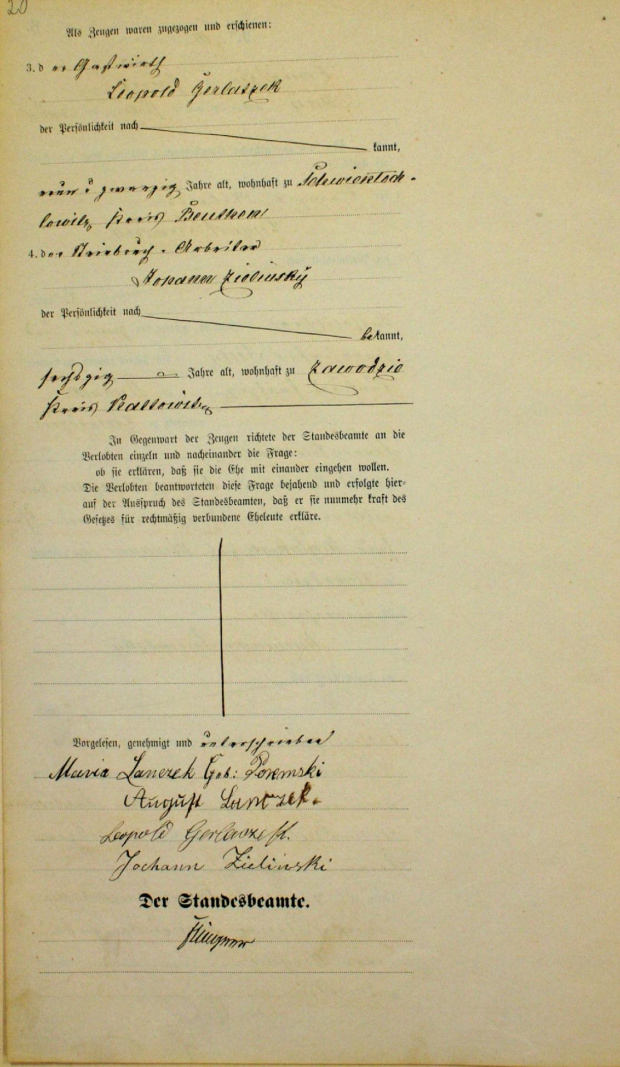 20
Als Zeugen waren zugezogen und erschienen:
3. der Gastwirth
Leopold Gerlaszek
der Persönlichkeit nach
kannt,
neun u zwanzig Jahre alt, wohnhaft zu Schwientoch-
lowitz Kreis Beuthen
4. der Steinbruch-Arbeiter
Johann Zielinsky
der Persönlichkeit nach
bekannt,
sechszig Jahre alt, wohnhaft zu Zawodzie
Kreis Kattowitz
In Gegenwart der Zeugen richtete der Standesbeamte an die
Verlobten einzeln und nacheinander die Frage:
ob sie erklären, daß sie die Ehe mit einander eingehen wollen.
Die Verlobten beantworteten diese Frage bejahend und erfolgte hier-
auf der Ausspruch des Standesbeamten, daß er sie nunmehr kraft des
Gesetzes für rechtmäßig verbundene Eheleute erkläre.
Vorgelesen, genehmigt und unterschrieben
Maria Lanczek Geb: Poremski
August Lanczek.
Leopold Gerlaszek.
Johann Zielinski
Der Standesbeamte.